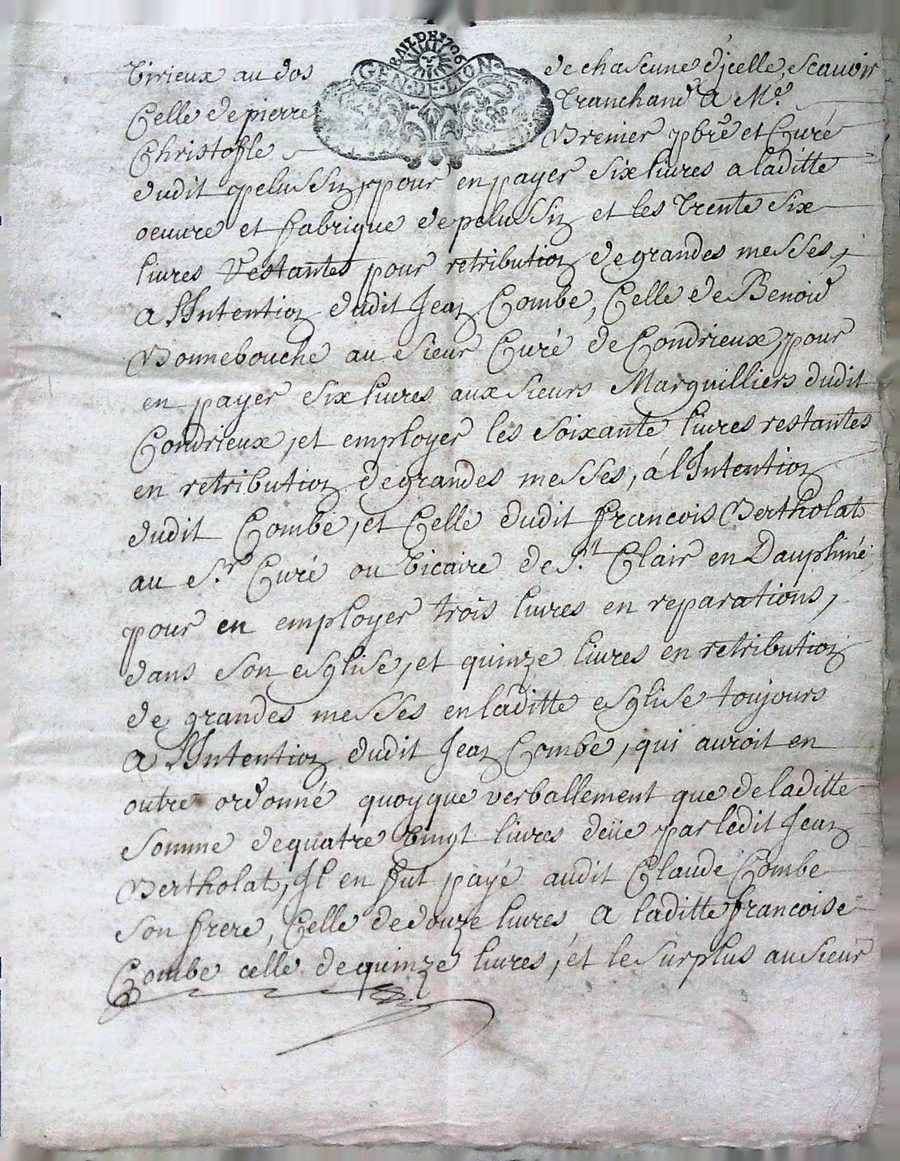 BAIL DE 1726
GEN·DE·LYON·
Virieux au dos de chascune d'jcelle, scavoir
Celle de pierre Tranchand a Mr.
Christofle Brenier pbre et Curé
dudit pelussin, pour en payer six livres a laditte
oeuvre et fabrique de pelussin et les trente six
livres restantes pour retribution de grandes messes,
a l'Intention dudit Jean Combe, Celle de Benoid
Bonnebouche au sieur Curé de Condrieux, pour
en payer six livres aux sieurs Marguilliers dudit
Condrieux, et employer les soixante livres restantes
en retribution de grandes messes, á l'Intention
dudit Combe, et Celle dudit francois Bertholat
au Sr. Curé ou vicaire de St. Clair en Dauphiné
pour en employer trois livres en reparations,
dans son esglise, et quinze livres en retribution
de grandes messes en laditte esglise toujours
a l'Intention dudit Jean Combe, qui auroit en
outre ordonné quoyque verballement que de laditte
somme de quatre vingt livres deüe par ledit Jean
Bertholat, Il en fut payé audit Claude Combe
son frere, Celle de douze livres, a laditte francoise
Combe celle de quinze livres, et le surplus au sieur